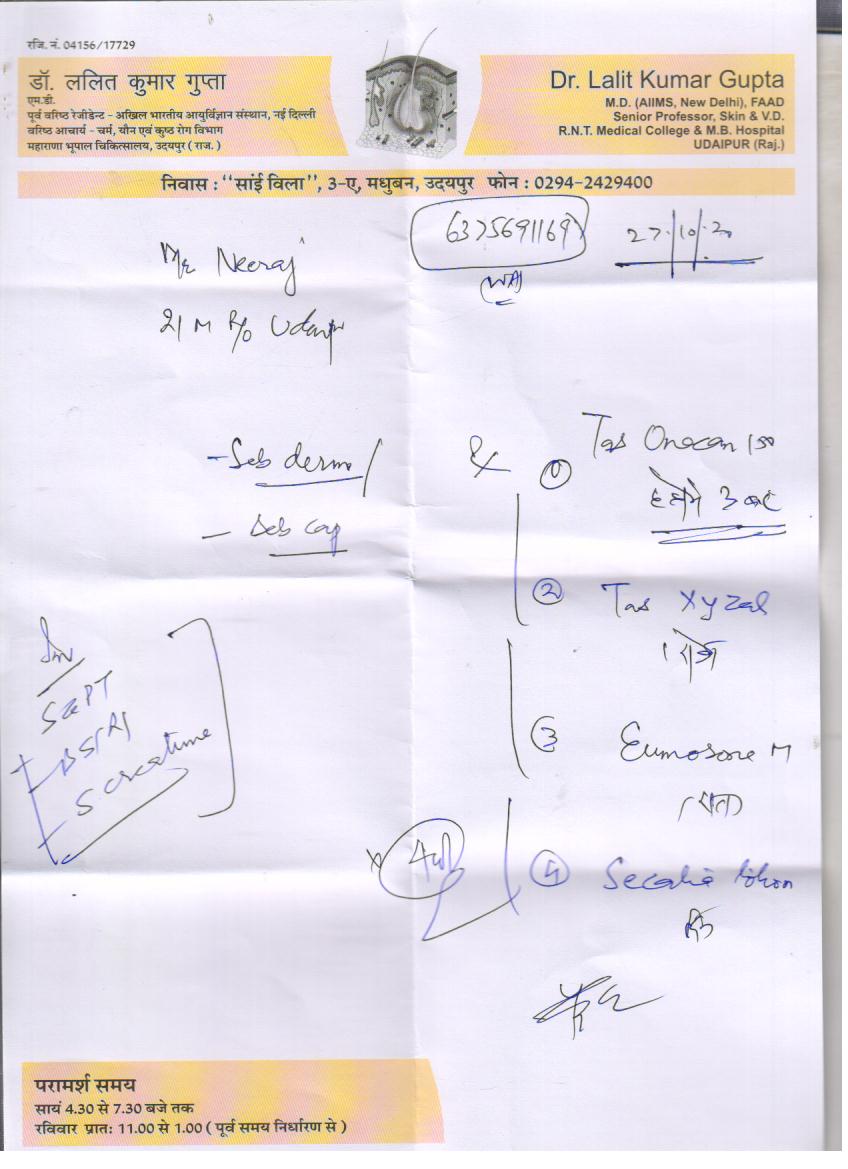 रजि. नं. 04156/17729
डॉ. ललित कुमार गुप्ता
एम.डी.
पूर्व वरिष्ठ रेजीडेन्ट - अखिल भारतीय आयुर्विज्ञान संस्थान, नई दिल्ली
वरिष्ठ आचार्य - चर्म, यौन एवं कुष्ठ रोग विभाग
महाराणा भूपाल चिकित्सालय, उदयपुर ( राज. )
Dr. Lalit Kumar Gupta
M.D. (AIIMS, New Delhi), FAAD
Senior Professor, Skin & V.D.
R.N.T. Medical College & M.B. Hospital
UDAIPUR (Raj.)
निवास : "सांई विला", 3-ए, मधुबन, उदयपुर फोन : 0294-2429400
6375691169
27/10/20
(WA)
Mr Neeraj
21 M R/o Udaipur
- Seb derm /
- Seb cap
Inv
SGPT
BS(R)
S creatinine
① Tab Onecan 150
② Tab Xyzal
③ Eumosone M
④ Secalia lotion
परामर्श समय
सायं 4.30 से 7.30 बजे तक
रविवार प्रात: 11.00 से 1.00 ( पूर्व समय निर्धारण से )